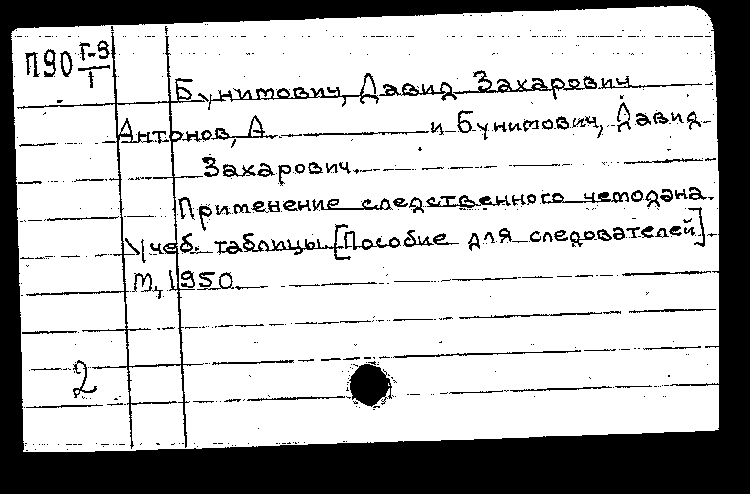 П90 Г-8/1
Бунимович, Давид Захарович
Антонов, А. и Бунимович, Давид
Захарович.
Применение следственного чемодана.
Учеб. таблицы. [Пособие для следователей].
М., 1950.
2